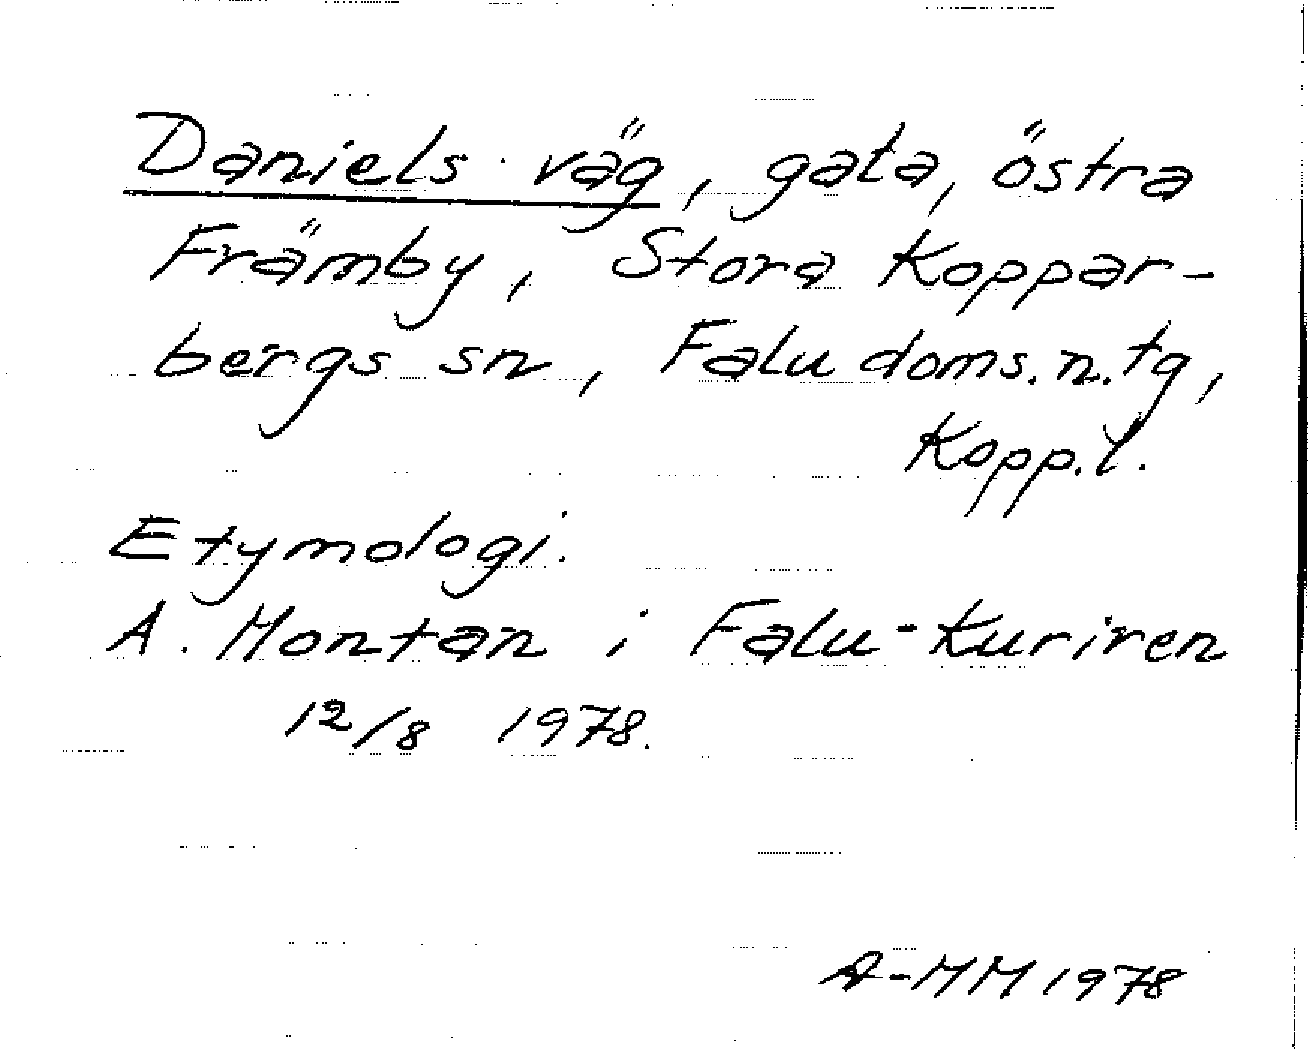 Daniels väg, gata, östra
Främby, Stora Koppar-
bergs sn, Falu doms.n.tg,
Kopp.l.
Etymologi.
A. Montan i Falu-Kuriren
12/8 1978.
A-MM 1978